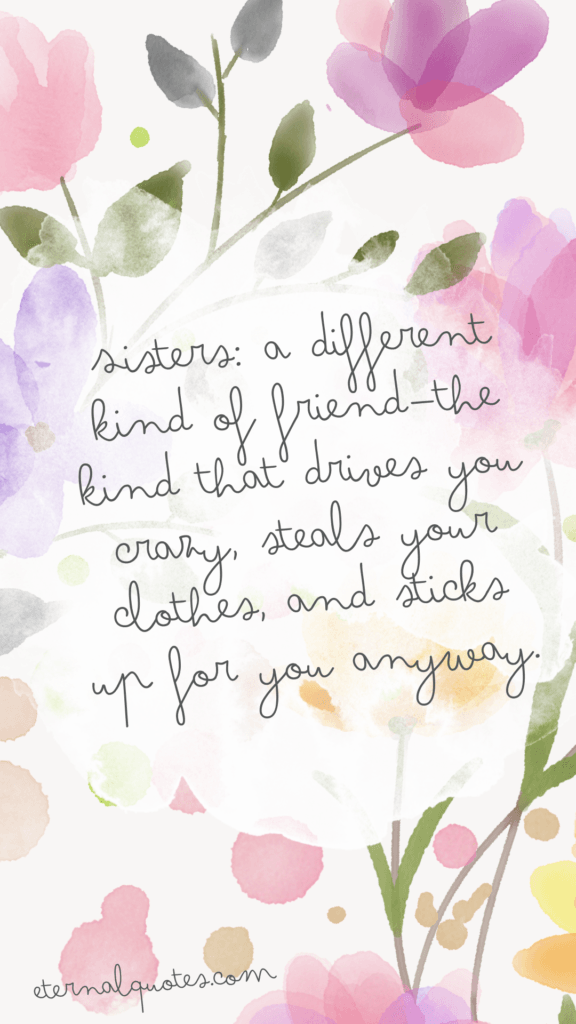 sisters: a different
kind of friend—the
kind that drives you
crazy, steals your
clothes, and sticks
up for you anyway.
eternalquotes.com